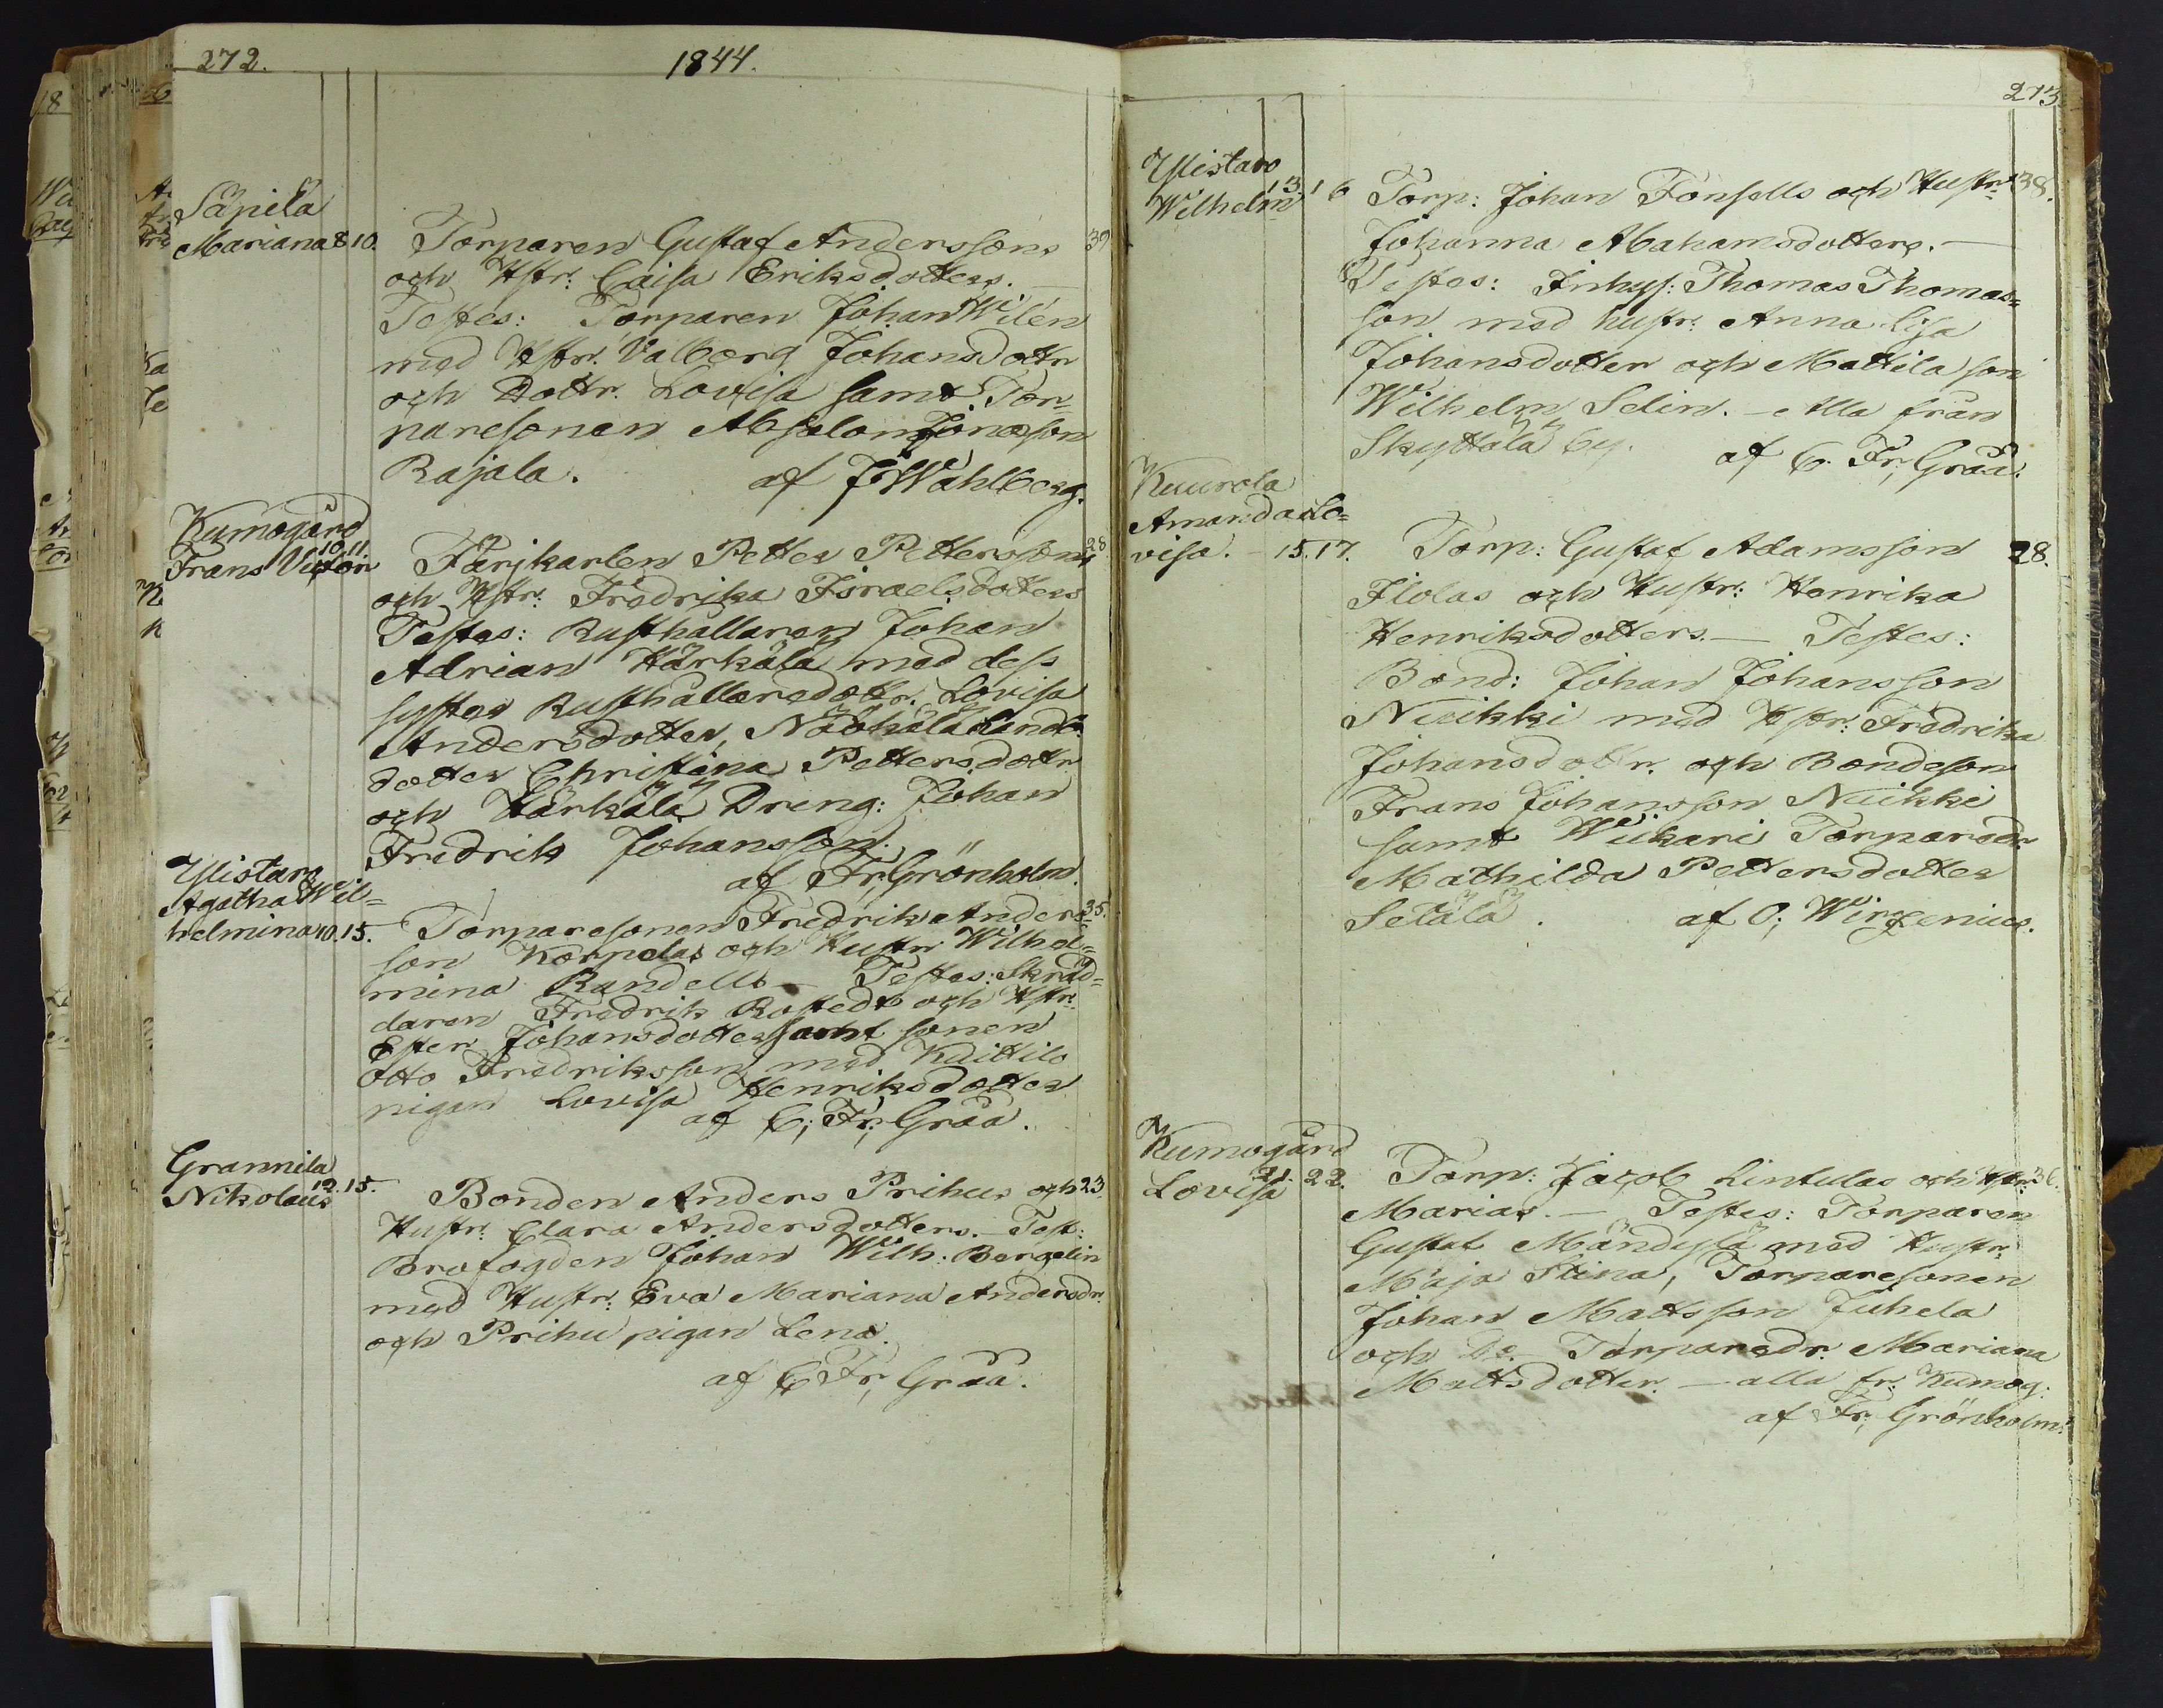 272.
1844.
Säpilä
Mariana 8 10. Torparen Gustaf Anderssons 39
och Hstr: Caisa Eriksdotters. —
Testes: Torparen Johan Wilén
med Hstr. Valborg Johansdottr
och Dottr. Lovisa samt Tor-
paresonen Absalom Jonasson
Rajala. af J Wahlberg.
Kumogård
Frans Victor 10. 11. Färjkarlen Petter Petterssons 28
och Hstr: Fredrika Israelsdotters
Testes: Rusthållaren Johan
Adrian Härkälä med dess
syster Rusthållaredottr. Lovisa
Andersdotter,
dotter Christina Pettersdottr
och Härkälä Dreng: Johan
Fredrik Johansson.
af Fr; Grönholm.
Ylistaro
Agatha Wil=
helmina 10. 15. Torparesonen Fredrik Anders= 35.
son Korpelas och Hustr Wilhel=
mina Randells — Testes: Skräd=
daren Fredrik Rostedt och Hstr.
Ester Johansdotter samt sonen
Otto Fredriksson med Knittilä
pigan Lovisa Henriksdotter
af C; Fr; Gråå.
Grannila
Nikolaus 12. 15. Bonden Anders Prihus och 23.
Hustr. Clara Andersdotters. — Test:
Brofogden Johan Wilh: Bergelin
med Hustr. Eva Mariana Andersdr.
och Prihu pigan Lena.
af C Fr; Gråå.
273
Ylistaro
Wilhelm 13. 16 Torp: Johan Fonsells och Hustr. 38.
Johanna Abahamsdotters. —
Testes: Inhys: Thomas Thomas=
son med hustr. Anna Lisa
Johansdotter och Mattila son
Wilhelm Selin. — Alla från
Skyttälä by. af C. Fr; Gråå.
Kuurola
Amanda Lo=
visa. — 15. 17. Torp: Gustaf Adamsson 28.
Ilolas och Hustr: Henrika
Henriksdotters. — Testes:
Bond: Johan Johansson
Niukki med Hstr. Fredrika
Johansdottr. och Bondeson
Frans Johansson Niukki
samt Wiikari Torparedr
Mathilda Pettersdotter
Setälä. af O; Wirzenius.
Kumogård
Lovisa 21. 22. Torp: Jacob Lintulas och Hstr. 36.
Marias. — Testes: Torparen
Gustaf Mändylä med Hustr.
Maja Stina, Torparesonen
Johan Mattsson Juhela
och Do. Torparedr. Mariana
Mattsdotter. — alla fr. Kumog:
af Fr; Grönholm.